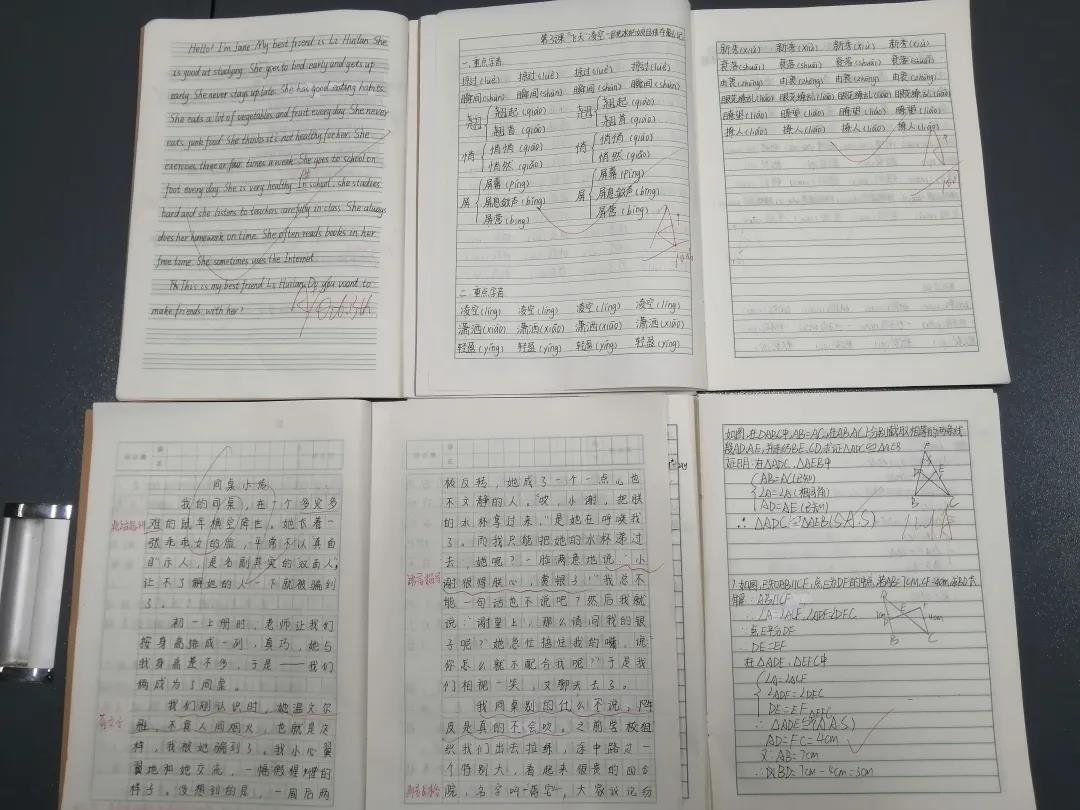 Hello! I'm Jane. My best friend is Li Huilan. She
is good at studying. She goes to bed early and gets up
early. She never stays up late. She has good eating habits.
She eats a lot of vegetables and fruit every day. She never
eats junk food. She thinks it's not healthy for her. She
exercises three or four times a week. She goes to school on
foot every day. She is very healthy. In school, she studies
hard and she listens to teachers carefully in class. She always
does her homework on time. She often reads books in her
free time. She sometimes uses the Internet.
This is my best friend Li Huilan. Do you want to
make friends with her?
一、重点字音
掠过(luè) 掠过(luè) 掠过(luè) 掠过(luè)
瞬间(shùn) 瞬间(shùn) 瞬间(shùn) 瞬间(shùn)
翘 翘起(qiào) 翘 翘起(qiào)
翘首(qiáo) 翘首(qiáo)
悄 悄悄(qiāo) 悄 悄悄(qiāo)
悄然(qiǎo) 悄然(qiǎo)
屏 屏幕(píng) 屏 屏幕(píng)
屏息敛声(bǐng) 屏息敛声(bǐng)
屏营(bīng) 屏营(bīng)
二、重点字音
凌空(líng) 凌空(líng) 凌空(líng) 凌空(líng)
潇洒(xiāo) 潇洒(xiāo) 潇洒(xiāo) 潇洒(xiāo)
轻盈(yíng) 轻盈(yíng) 轻盈(yíng) 轻盈(yíng)
新秀(xiù) 新秀(xiù) 新秀(xiù) 新秀(xiù)
衰落(shuāi) 衰落(shuāi) 衰落(shuāi) 衰落(shuāi)
由衷(zhōng) 由衷(zhōng) 由衷(zhōng) 由衷(zhōng)
眼花缭乱(liáo) 眼花缭乱(liáo) 眼花缭乱(liáo) 眼花缭乱(liáo)
瞭望(liào) 瞭望(liào) 瞭望(liào) 瞭望(liào)
撩人(liáo) 撩人(liáo) 撩人(liáo) 撩人(liáo)
我的同桌,在一个多灾多
难的鼠年横空降世。她长着一
张乖乖女的脸,平常不以真面
目示人,是名副其实的双面人,
让不了解她的人一下就被骗到
了。
初一上册时,老师让我们
按身高排成一列,真巧,她与
我身高差不多,于是——我们
俩成为了同桌。
我们刚认识时,她温文尔
雅,不食人间烟火,也就是这
样,我被她骗到了。我小心翼
翼地和她交流,一幅假惺惺的
样子。没想到的是,一周后两
极反转,她成了一个一点也
不文静的人。“哎,小谢,把朕
的水杯拿过来。”是她在呼唤我
了。而我只能把她的水杯递过
去,她呢?一脸满意地说:“小
谢很得朕心,黄银子!”我总不
能一句话也不说吧?然后我就
说:“谢皇上,那么请问我的银
子呢?”她急忙捂住我的嘴,说
你怎么就不配合我呢?”于是我
们相视一笑,又聊天去了。
我同桌别的什么不说,
反是真的不会吹。之前学校组
织我们出去拉练,途中路过一
个特别大,看起来很贵的四合
院,大家议论纷
如图,在△ABC中,AB=AC,在AB、AC上分别截取相等的两条线
段AD、AE,并连结BE、CD,求证△ADC≌△AEB
证明:在△ADC、△AEB中
AB=AC(已知)
∠A=∠A(公共角)
AD=AE(已知)
∴△ADC≌△AEB(S.A.S)
1.如图,已知AB∥CF,点E为DF的中点,若AB=7cm,CF=4cm,求BD长
解:AB∥CF
∴∠A=∠ACF,∠ADF=∠DFC
∵点E平分DF
∴DE=EF
在△ADE、△EFC中
∠A=∠ACF
∠ADE=∠DFC
DE=EF
∴△ADE≌(A.A.S)
AD=FC=4cm
又∵AB=7cm
∴BD=7cm-4cm=3cm